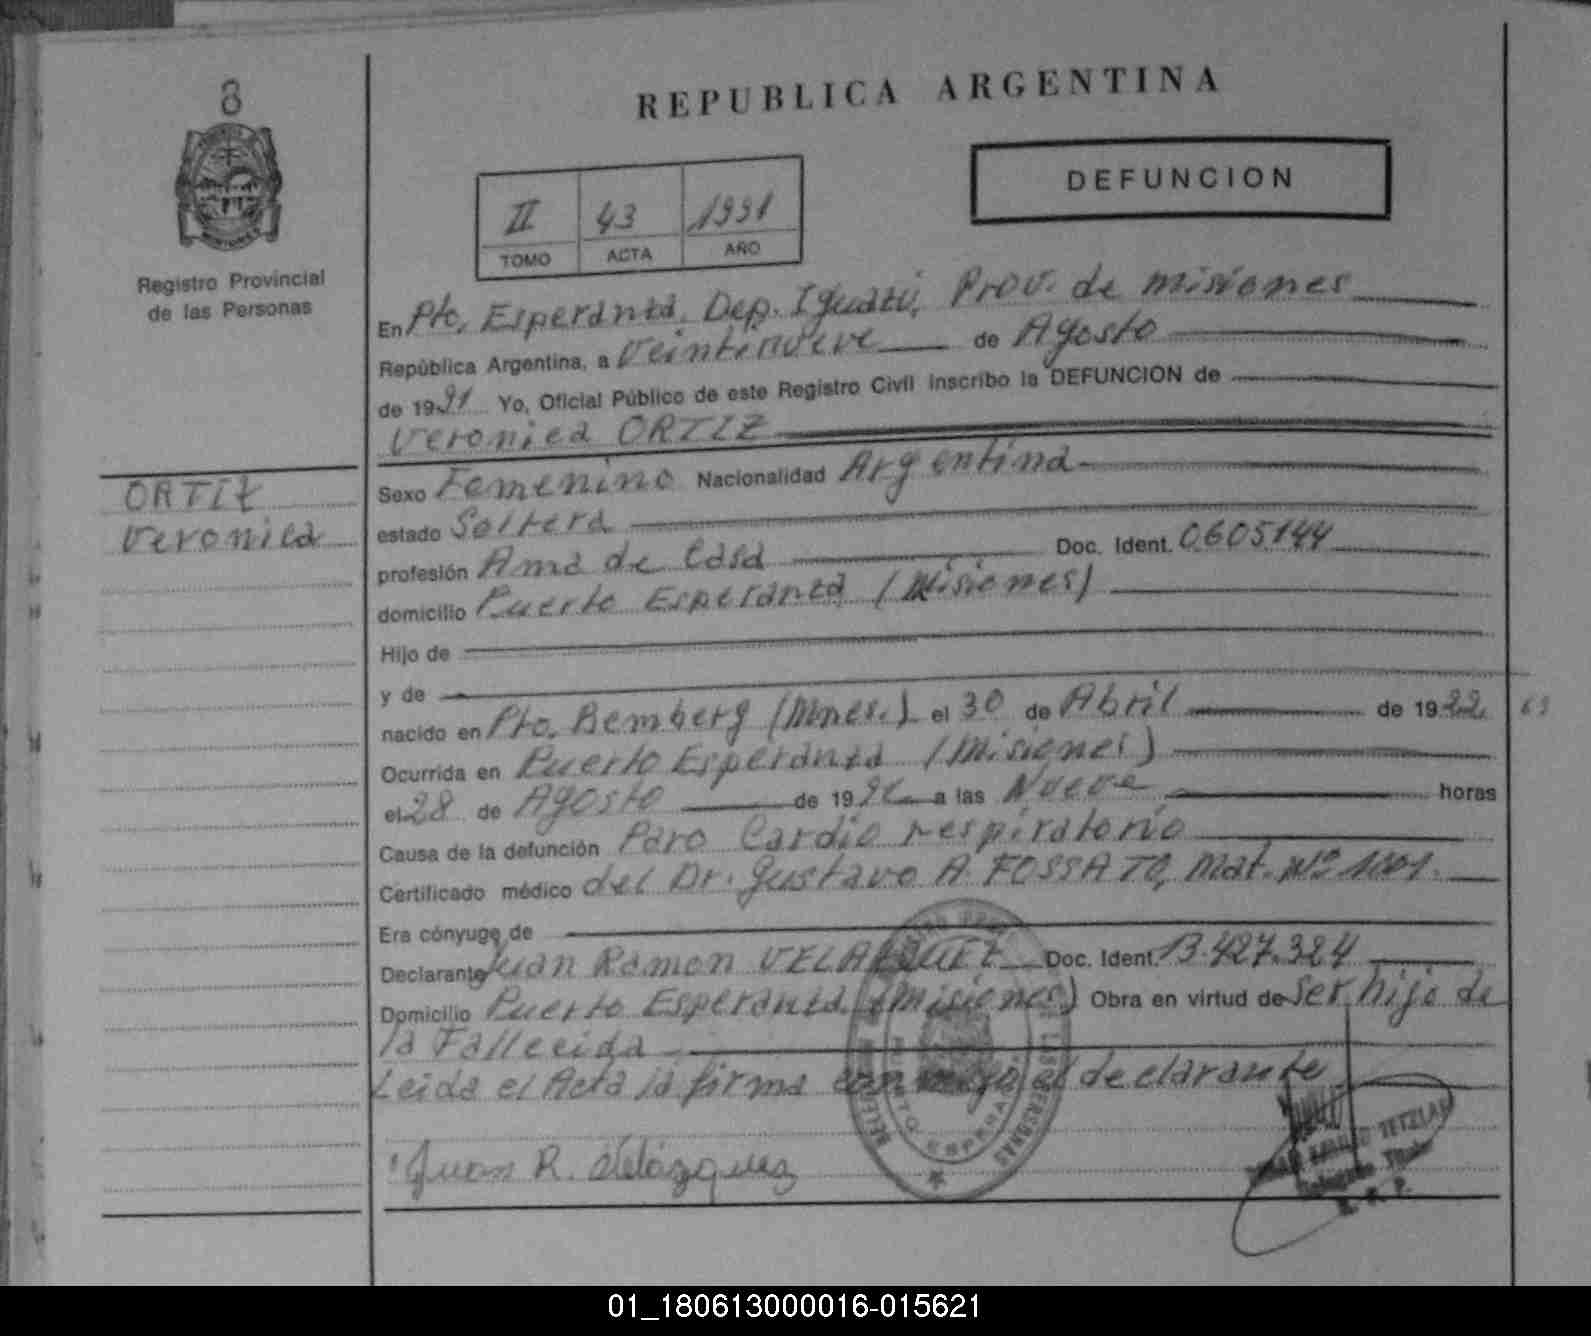 8
REPUBLICA ARGENTINA
DEFUNCION
II 43 1991
TOMO ACTA AÑO
Registro Provincial
de las Personas
En Pto. Esperanza, Dep. Iguazú, Prov. de misiones
República Argentina, a Veintinueve de Agosto
de 1991 Yo, Oficial Público de este Registro Civil inscribo la DEFUNCION de
Veronica ORTIZ
ORTIZ
Veronica
Sexo Femenino Nacionalidad Argentina
estado Soltera
profesión Ama de Casa Doc. Ident. 0.605.144
domicilio Puerto Esperanza (Misiones)
Hijo de
y de
nacido en Pto. Bemberg (Mnes.) el 30 de Abril de 1922 69
Ocurrida en Puerto Esperanza (Misiones)
el 28 de Agosto de 1991 a las Nueve horas
Causa de la defunción Paro Cardio respiratorio
Certificado médico del Dr. Gustavo A. FOSSATO, Mat. Nº 1001.
Era cónyuge de
Declarante Juan Ramon VELAZQUEZ Doc. Ident. 13.427.324
Domicilio Puerto Esperanza (Misiones) Obra en virtud de Ser hijo de
la Fallecida
Leida el Acta la firma conmigo el declarante
Juan R. Velázquez
PUERTO ESPERANZA
TETZLAF
Delegado Titular
R. P. P.
01_180613000016-015621